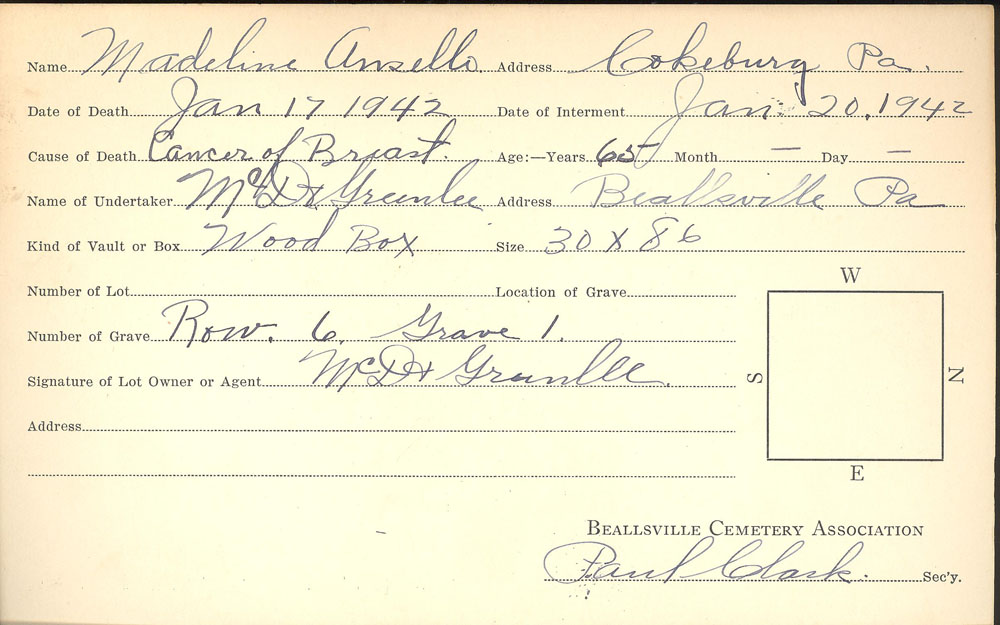 Name Madeline Ansello. Address Cokeburg Pa.
Date of Death Jan 17 1942 Date of Interment Jan. 20, 1942
Cause of Death Cancer of Breast. Age:—Years 65 Month — Day —
Name of Undertaker McD & Greenlee Address Beallsville Pa
Kind of Vault or Box Wood Box Size 30 X 86
Number of Lot Location of Grave
Number of Grave Row. 6. Grave 1.
Signature of Lot Owner or Agent McD & Greenlee.
Address
W
S
N
E
BEALLSVILLE CEMETERY ASSOCIATION
Paul Clark. Sec'y.